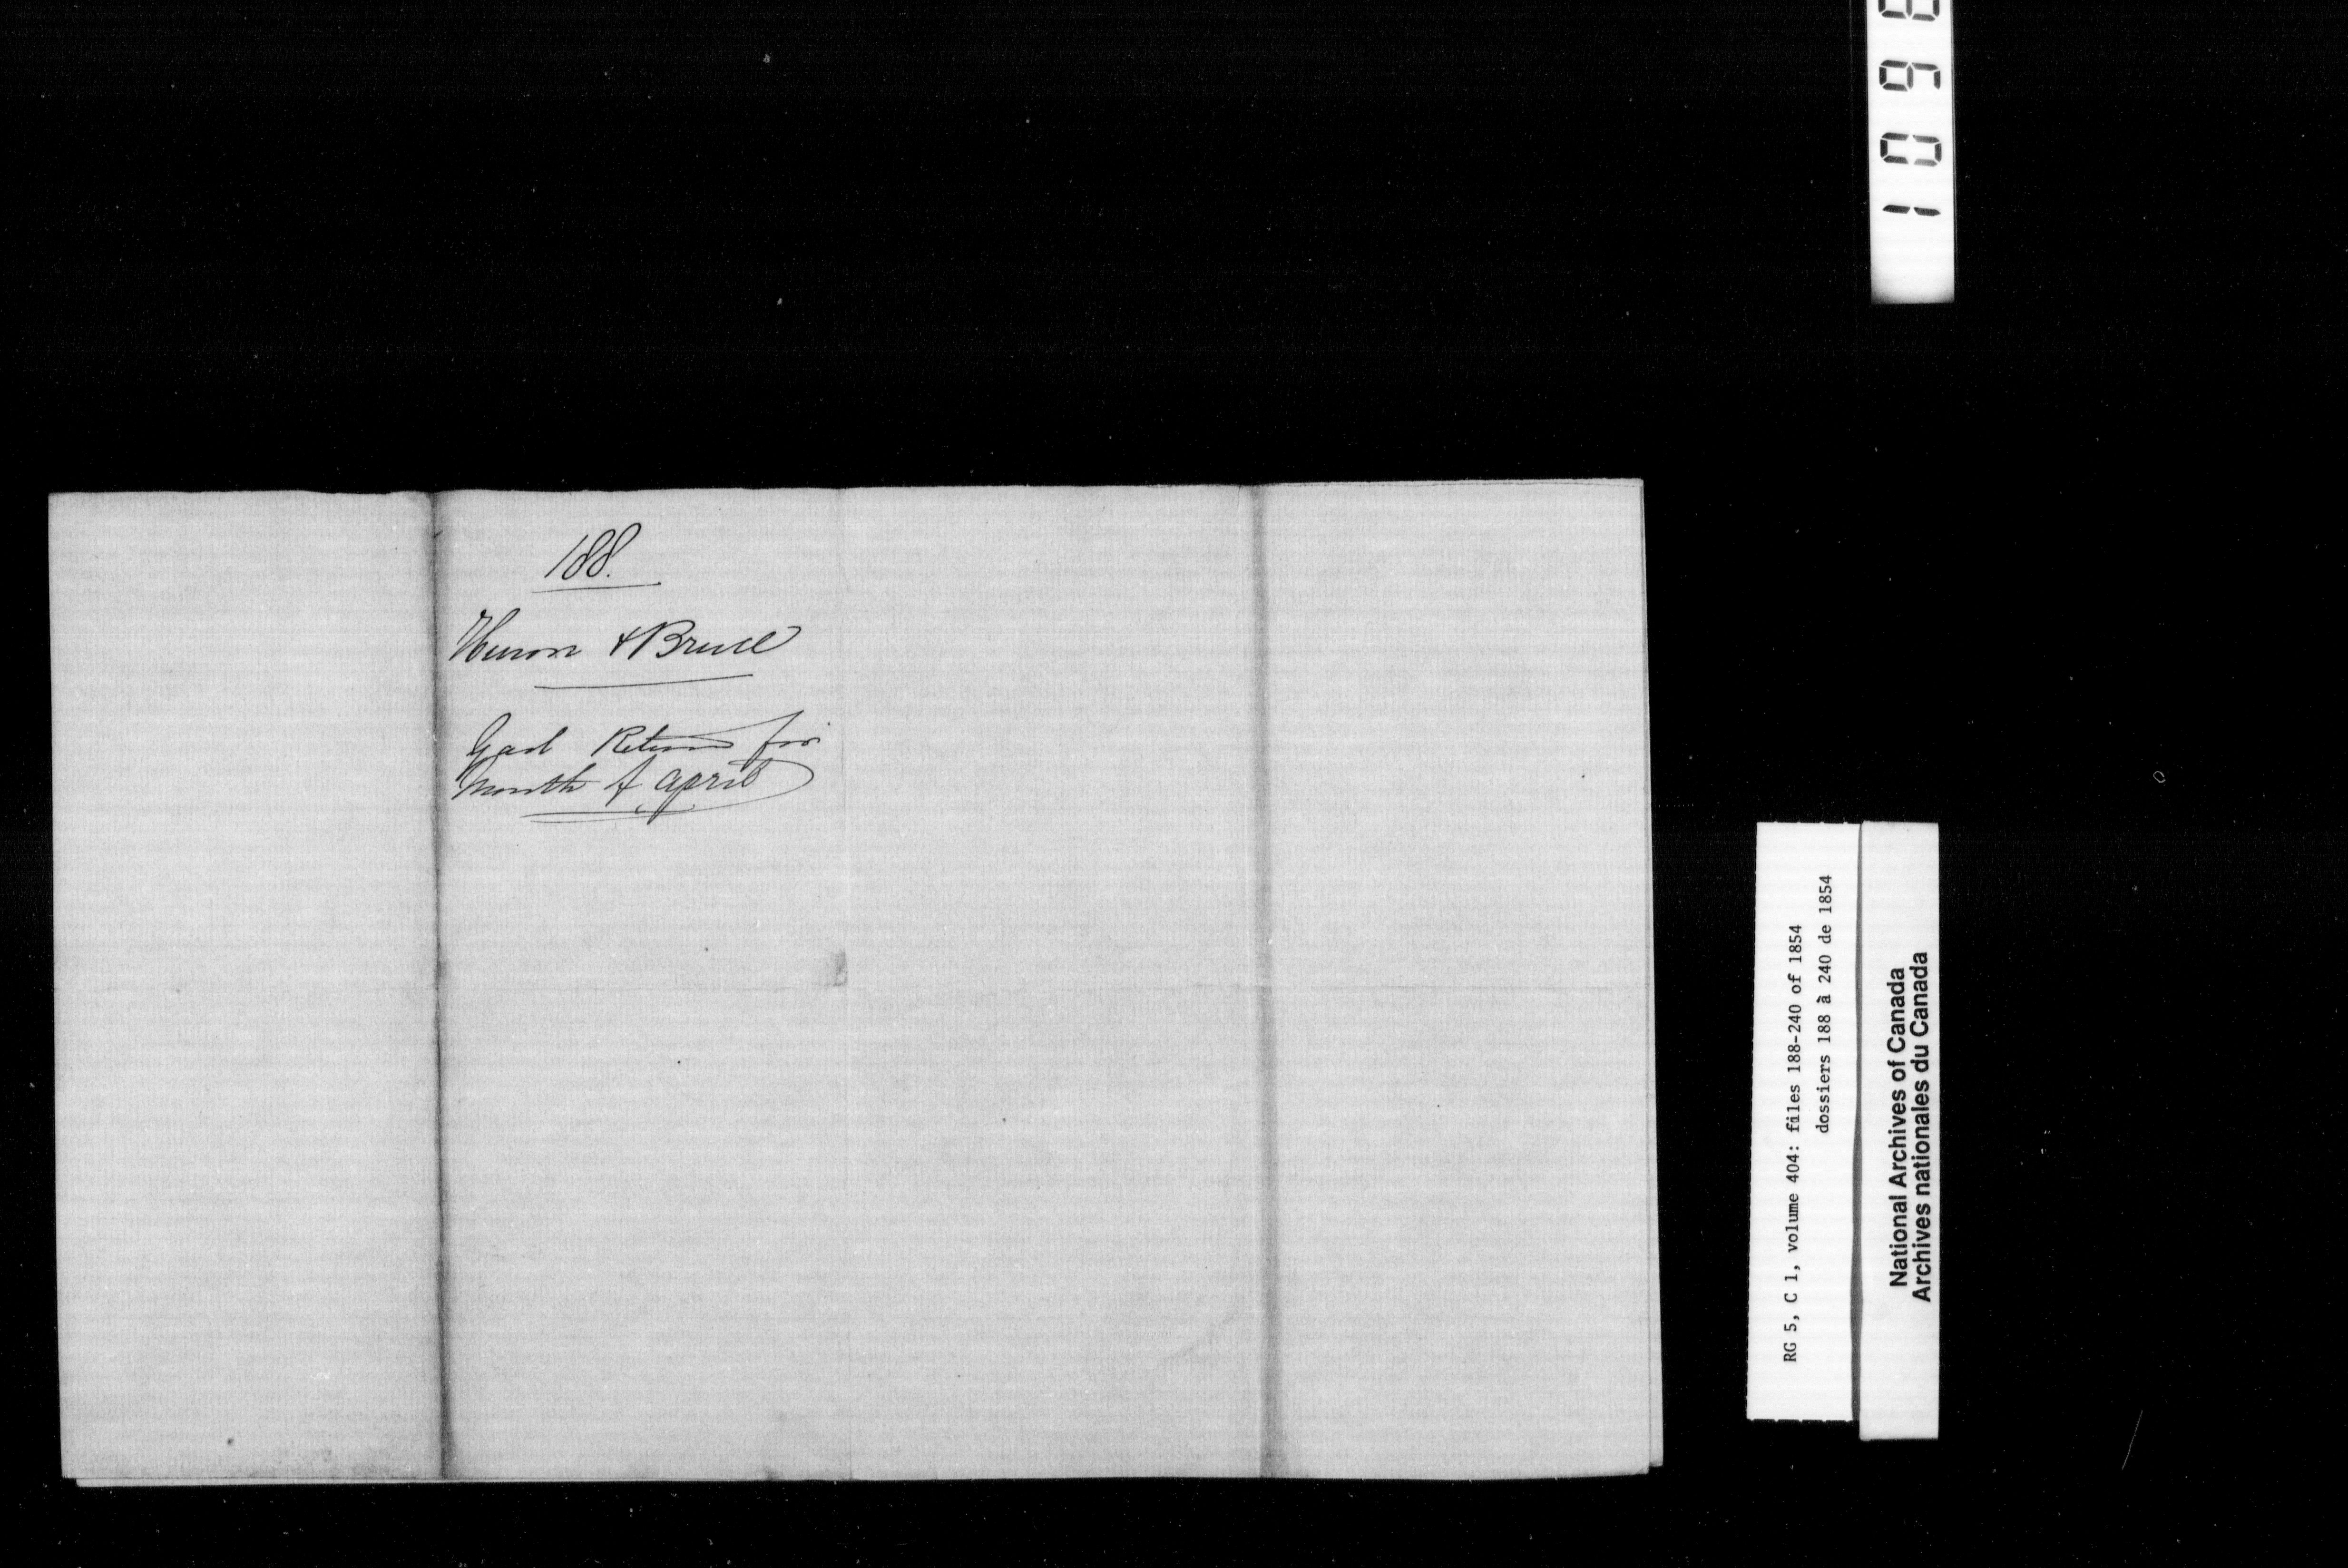 188.
Huron & Bruce
Gaol Return for
Month of April
RG 5, C 1, volume 404: files 188-240 of 1854
dossiers 188 à 240 de 1854
National Archives of Canada
Archives nationales du Canada
109